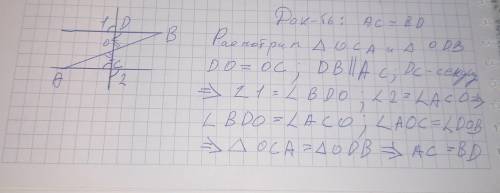 Док-ть: AC = BD
1 D
O
B
C
A
2
Рассмотрим △ OCA и △ ODB
DO = OC; DB ∥ AC, DC-секущ
⇒ ∠1 = ∠BDO; ∠2 = ∠ACO ⇒
∠BDO = ∠ACO; ∠AOC = ∠DOB
⇒ △ OCA = △ ODB ⇒ AC = BD